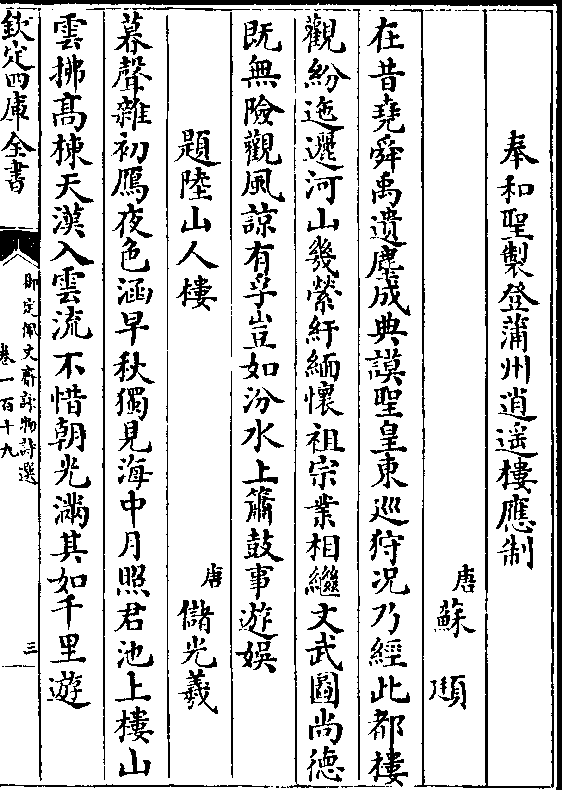 奉和聖製登蒲州逍遥樓應制
唐蘇頲
在昔堯舜禹遺塵成典謨聖皇東巡狩况乃經此都樓
觀紛迤邐河山幾縈紆緬懷祖宗業相繼文武圖尚德
既無險觀風諒有孚豈如汾水上簫鼓事遊娱
題陸山人樓
唐儲光羲
暮聲雜初鴈夜色涵早秋獨見海中月照君池上樓山
雲拂髙棟天漢入雲流不惜朝光滿其如千里遊
欽定四庫全書
御定佩文齋詠物詩選
卷一百十九
三